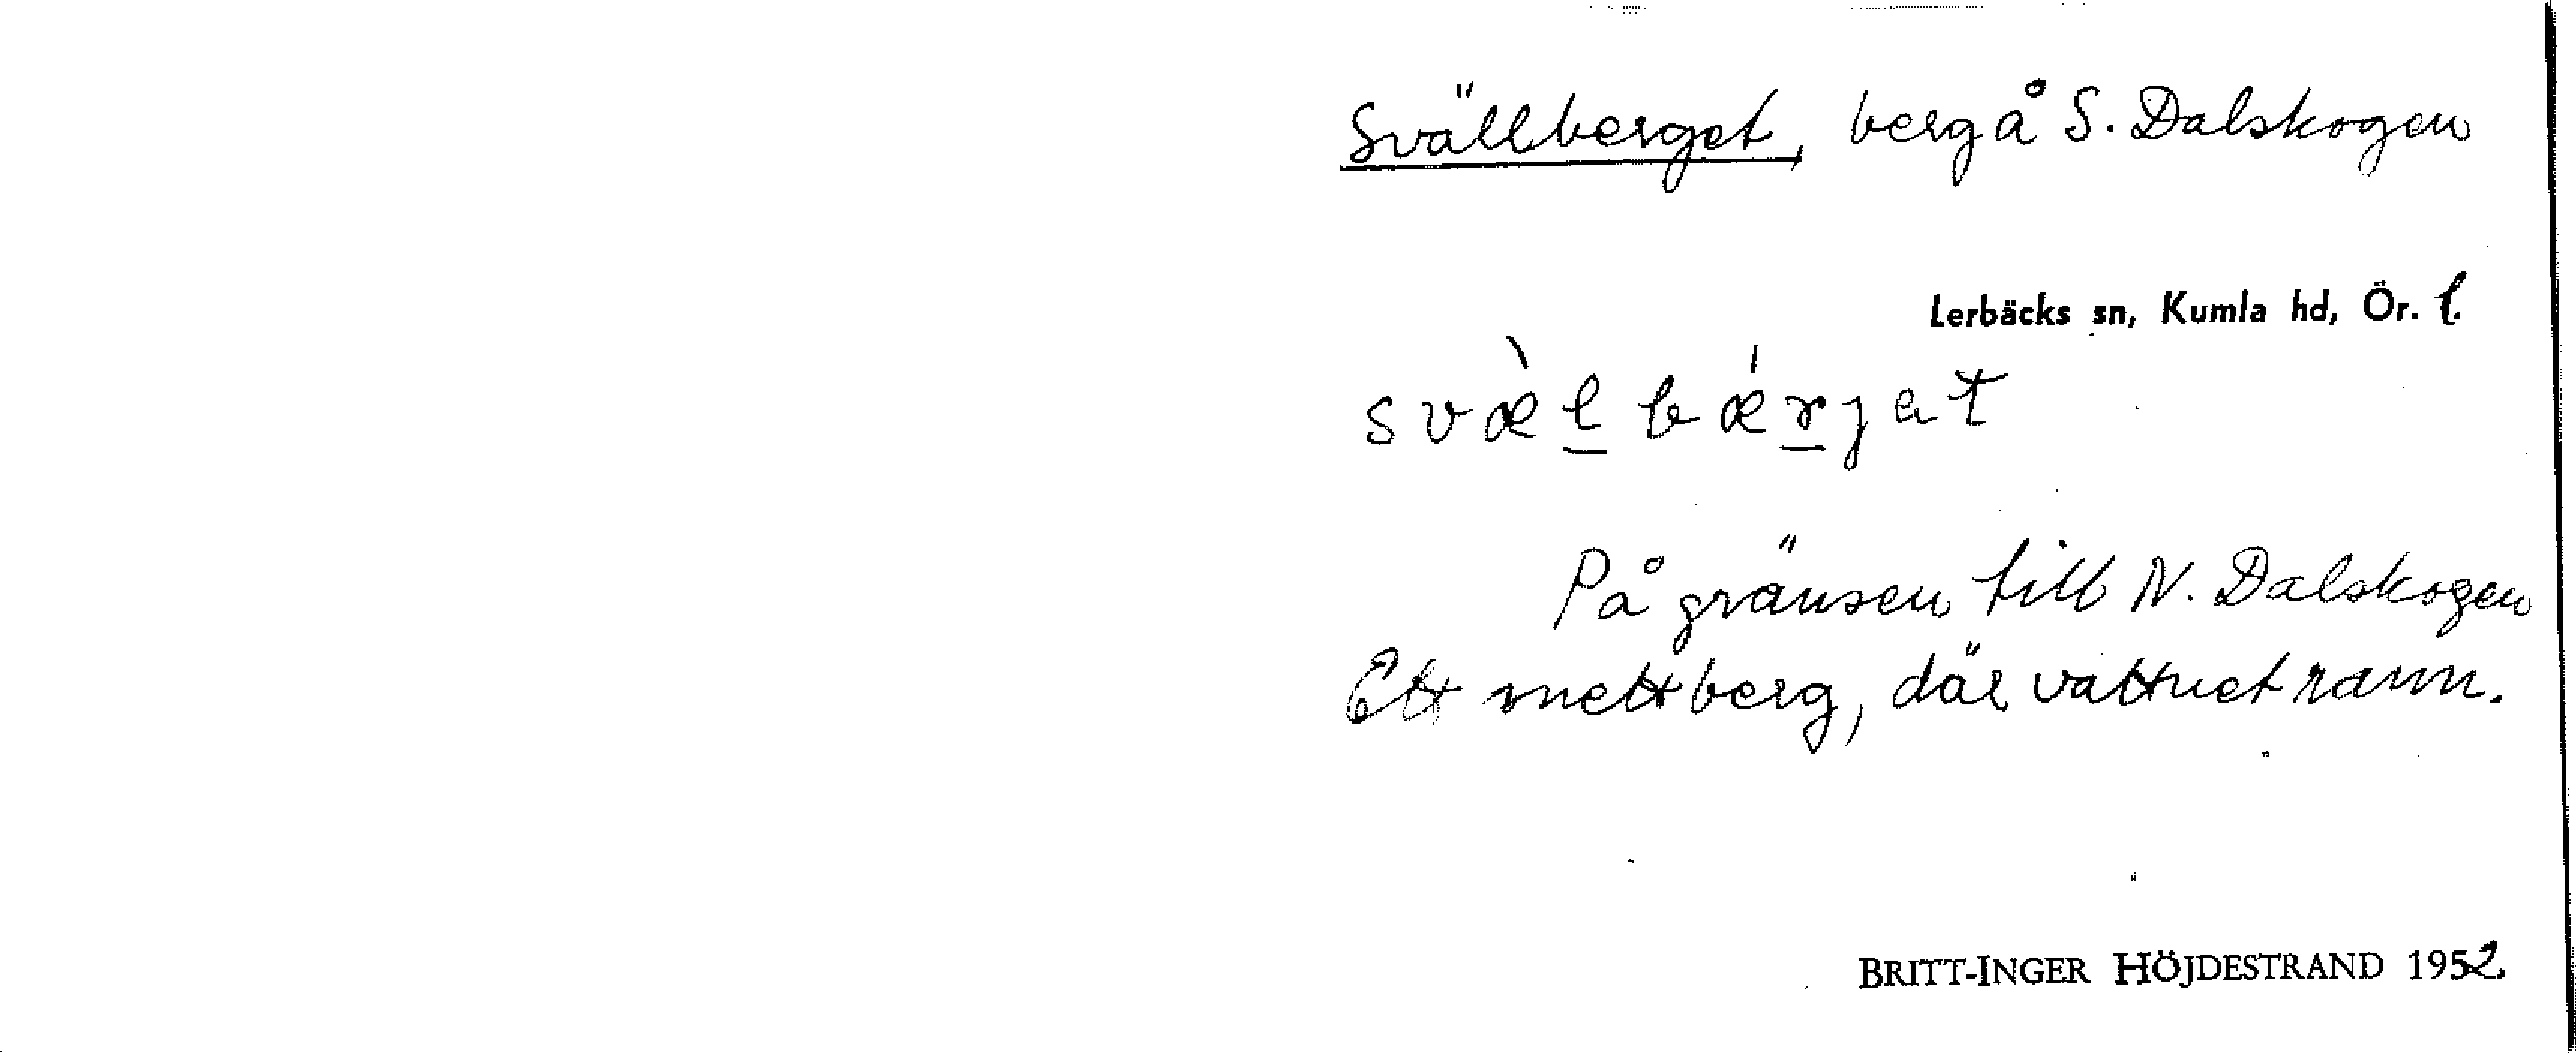 Svällberget, berg å S. Dalskogen
Lerbäcks sn, Kumla hd, Ör. l.
svæ̀l̲bǽr̲jat
På gränsen till N. Dalskogen
Ett mettberg, där vattnet rann.
BRITT-INGER HÖJDESTRAND 1952